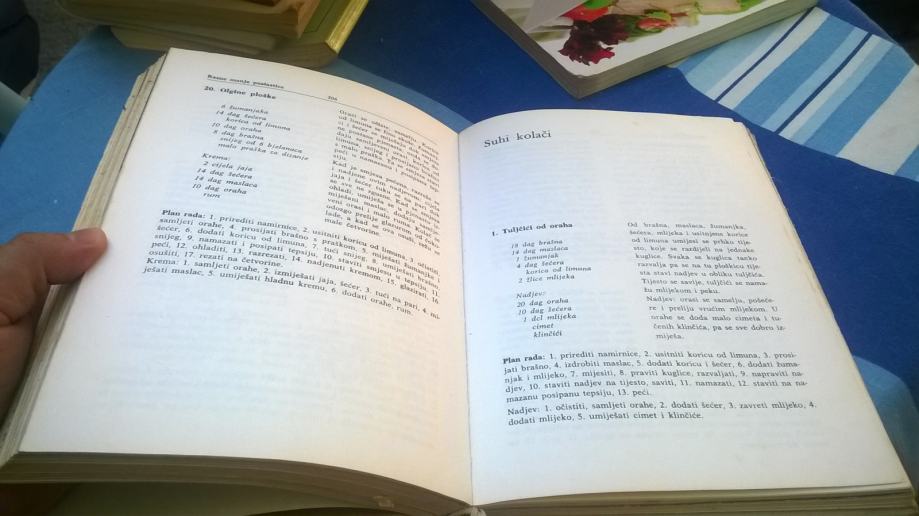 Razne manje poslastice
204
20. Olgine ploške
6 žumanjaka
14 dag šećera
korica od limuna
10 dag oraha
8 dag brašna
snijeg od 6 bjelanaca
malo praška za dizanje
Krema:
2 cijela jaja
14 dag šećera
14 dag maslaca
10 dag oraha
rum
Plan rada: 1. prirediti namirnice, 2. usitniti koricu od limuna, 3. očistiti,
samljeti orahe, 4. prosijati brašno s praškom, 5. miješati žumanjke i
šećer, 6. dodati koricu od limuna, 7. tući snijeg, 8. umiješati brašno,
snijeg, 9. namazati i posipati tepsiju, 10. staviti smjesu u tepsiju, 11.
peći, 12. ohladiti, 13. razrezati, 14. nadjenuti kremom, 15. glazirati, 16.
osušiti, 17. rezati na četvorine.
Krema: 1. samljeti orahe, 2. izmiješati jaja, šećer, 3. tući na pari, 4. mi-
ješati maslac, 5. umiješati hladnu kremu, 6. dodati orahe, rum.
Suhi kolači
1. Tuljčići od oraha
18 dag brašna
14 dag maslaca
1 žumanjak
4 dag šećera
korica od limuna
2 žlice mlijeka
Nadjev:
20 dag oraha
10 dag šećera
1 dcl mlijeka
cimet
klinčići
Od brašna, maslaca, žumanjka,
šećera, mlijeka i usitnjene korice
od limuna umijesi se prhko tije-
sto, koje se razdijeli na jednake
kuglice. Svaka se kuglica tanko
razvalja pa se na tu pločicu tije-
sta stavi nadjev u obliku tuljčića.
Tijesto se savije, tuljčići se nama-
žu mlijekom i peku.
Nadjev: orasi se samelju, pošeće-
re i preliju vrućim mlijekom. U
orahe se doda malo cimeta i tu-
čenih klinčića, pa se sve dobro iz-
miješa.
Plan rada: 1. prirediti namirnice, 2. usitniti koricu od limuna, 3. prosi-
jati brašno, 4. izdrobiti maslac, 5. dodati koricu i šećer, 6. dodati žuma-
njak i mlijeko, 7. mijesiti, 8. praviti kuglice, razvaljati, 9. napraviti na-
djev, 10. staviti nadjev na tijesto, saviti, 11. namazati, 12. staviti na na-
mazanu posipanu tepsiju, 13. peći.
Nadjev: 1. očistiti, samljeti orahe, 2. dodati šećer, 3. zavreti mlijeko, 4.
dodati mlijeko, 5. umiješati cimet i klinčiće.